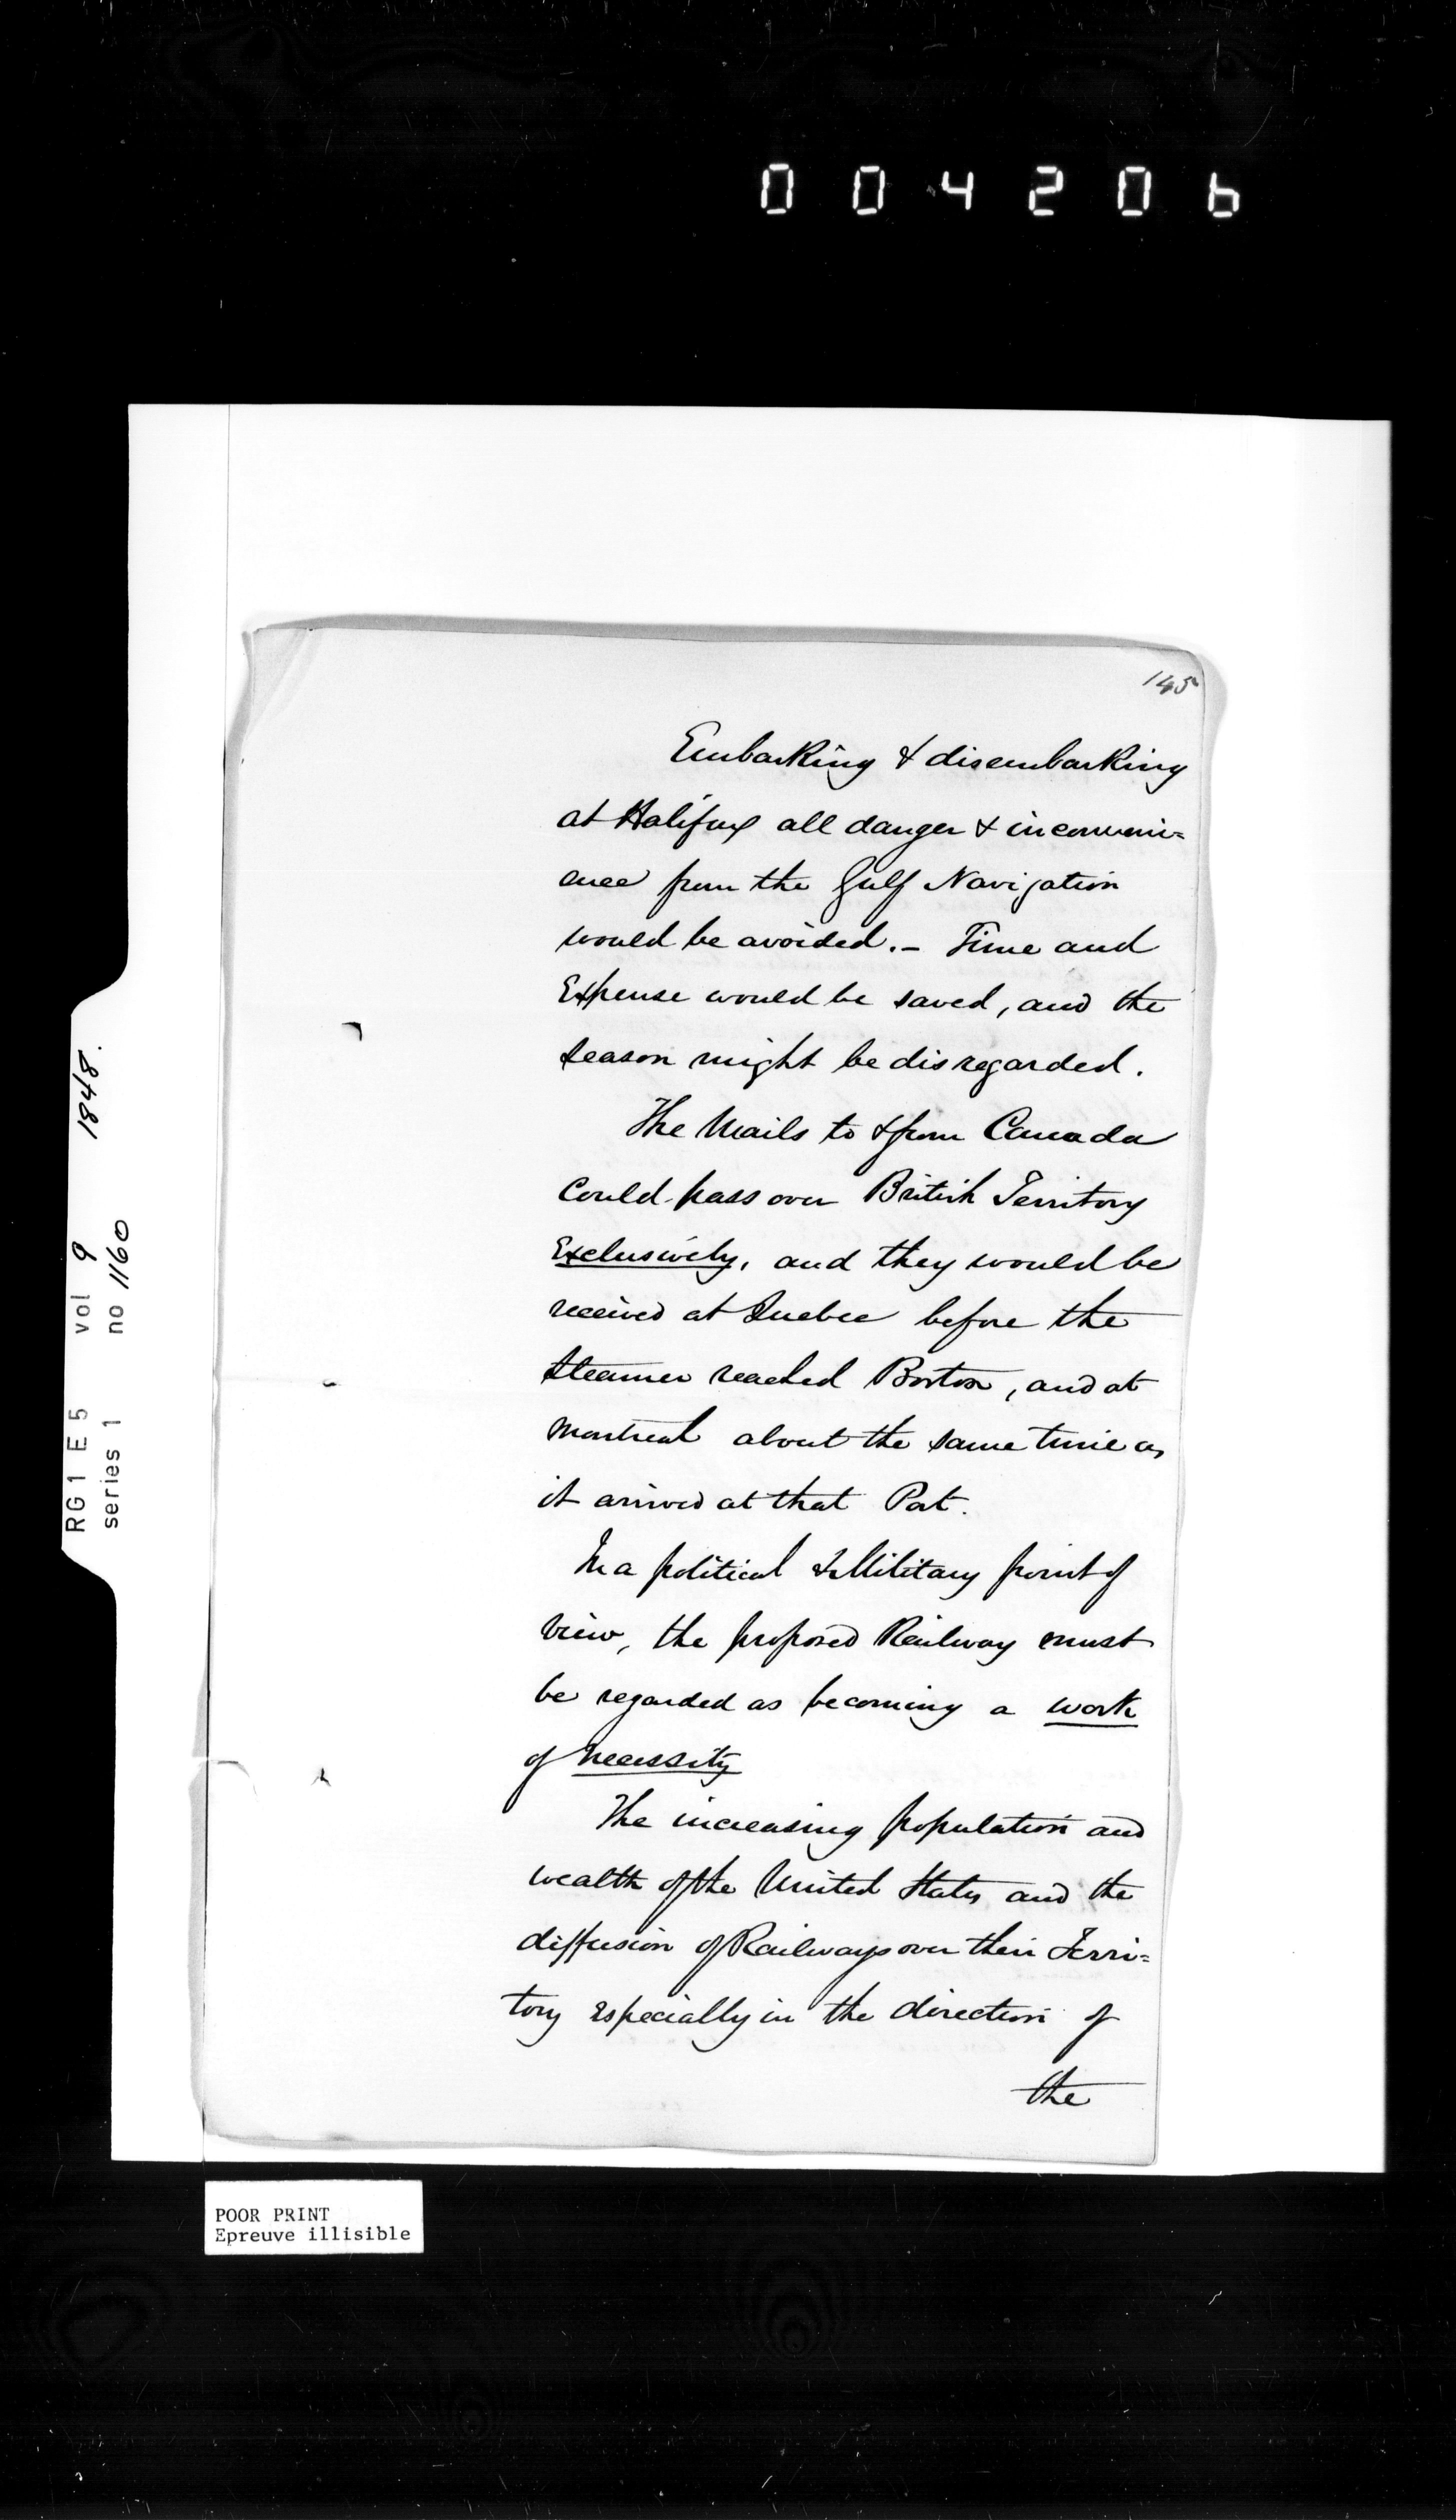 004206
145
Embarking & disembarking
at Halifax all danger & inconveni=
ence from the Gulf Navigation
would be avoided.- Time and
Expense would be saved, and the
season might be disregarded.
The Mails to & from Canada
Could pass over British Territory
Exclusively, and they would be
received at Quebec before the
Steamer reached Boston, and at
Montreal about the same time as
it arrived at that Port.
In a political & Military point of
view, the proposed Railway must
be regarded as becoming a work
of necessity
The increasing population and
wealth of the United States and the
diffusion of Railways over their Terri=
tory Especially in the direction of
the
RG 1 E 5 vol 9 1848.
series 1 no 1160
POOR PRINT
Epreuve illisible